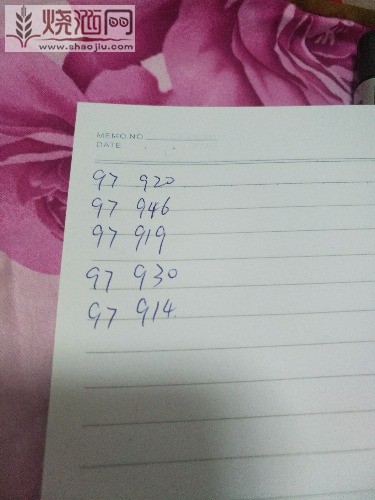 烧酒网
www.shaojiu.com
MEMO NO
DATE
97 920
97 946
97 919
97 930
97 914